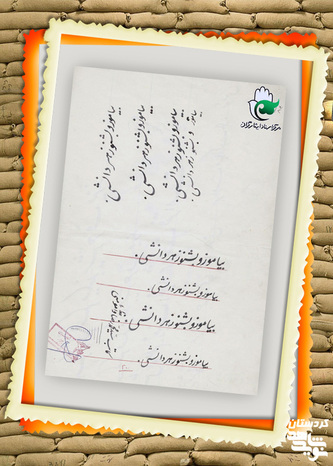 مرکز اسناد ایثارگران
بیاموز و بشنو ز هر دانشی.
بیاموز و بشنو ز هر دانشی.
بیاموز و بشنو ز هر دانشی.
بیاموز و بشنو ز هر دانشی.
بیاموز و بشنو ز هر دانشی.
بیاموز و بشنو ز هر دانشی.
بیاموز و بشنو ز هر دانشی.
بیاموز و بشنو ز هر دانشی.
۲۰
نوید شاهد
کردستان